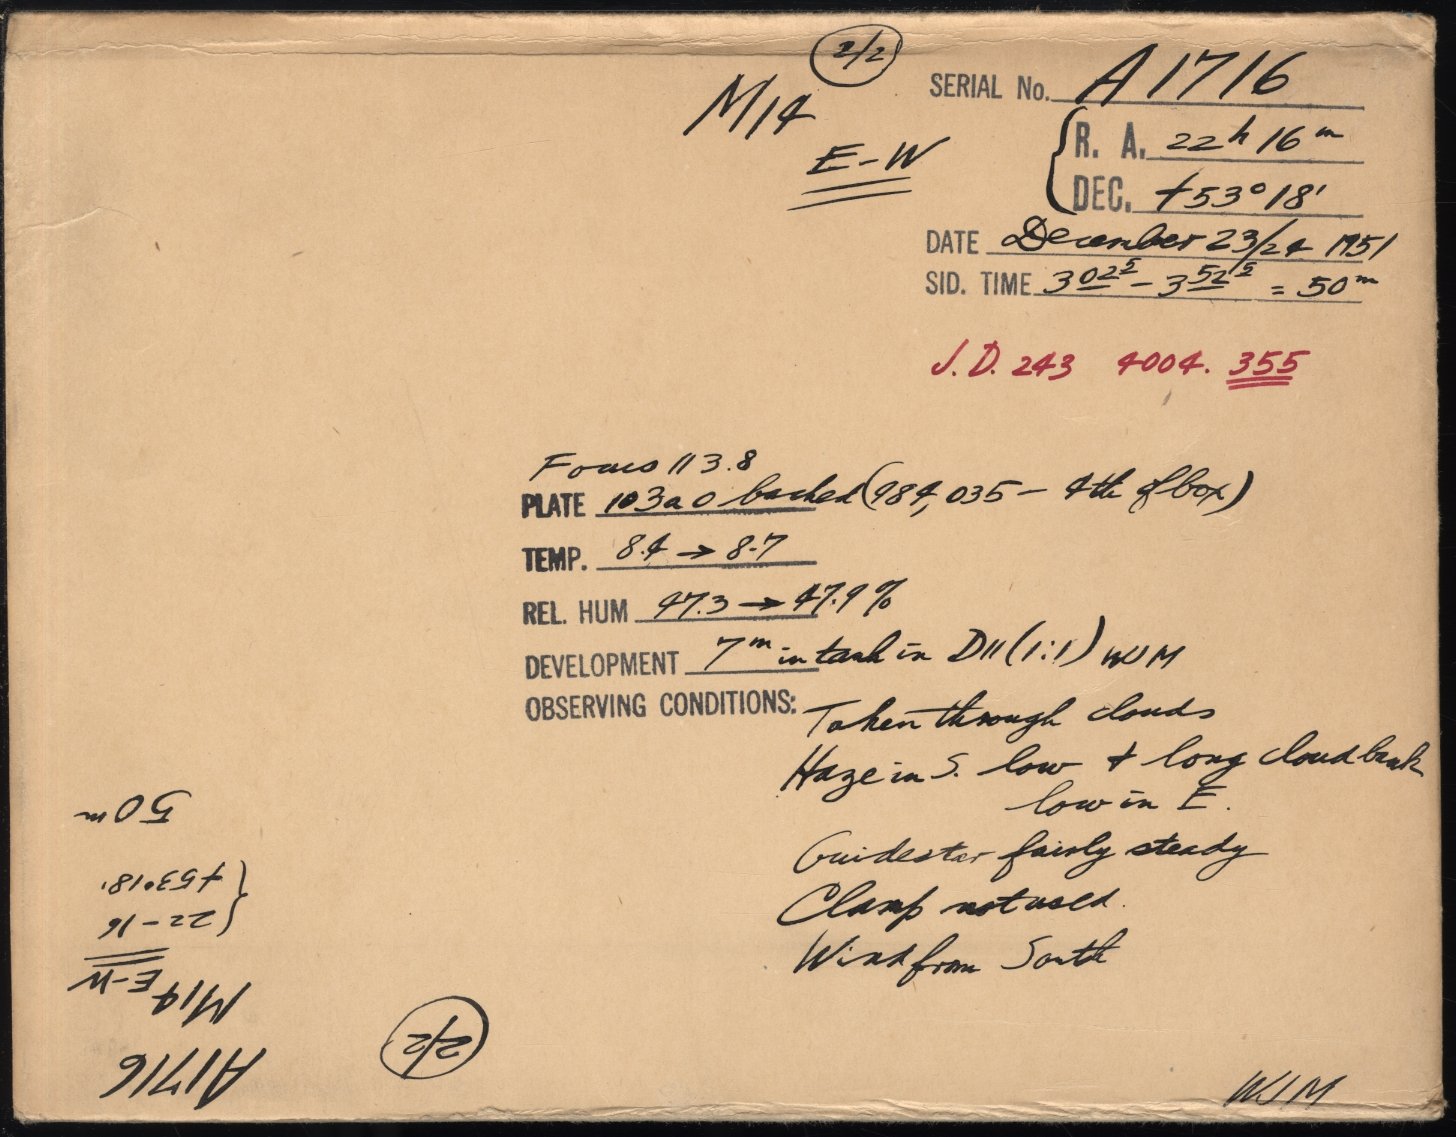 2/2
M14
E-W
SERIAL No. A1716
R. A. 22h 16m
DEC. +53°18'
DATE December 23/24 1951
SID. TIME 3 02⁵ - 3 52⁵ = 50m
J.D. 243 4004.355
Focus 113.8
PLATE 103a O backed (984,035 - 4th of box)
TEMP. 8.4 → 8.7
REL. HUM 47.3 → 47.9%
DEVELOPMENT 7m in tank in D11 (1:1) WJM
OBSERVING CONDITIONS: Taken through clouds
Haze in S. low + long cloud bank
low in E.
Guidestar fairly steady
Clamp not used.
Wind from South
WJM
2/2
A1716
M14
E-W
22-16
+53°18'
50m